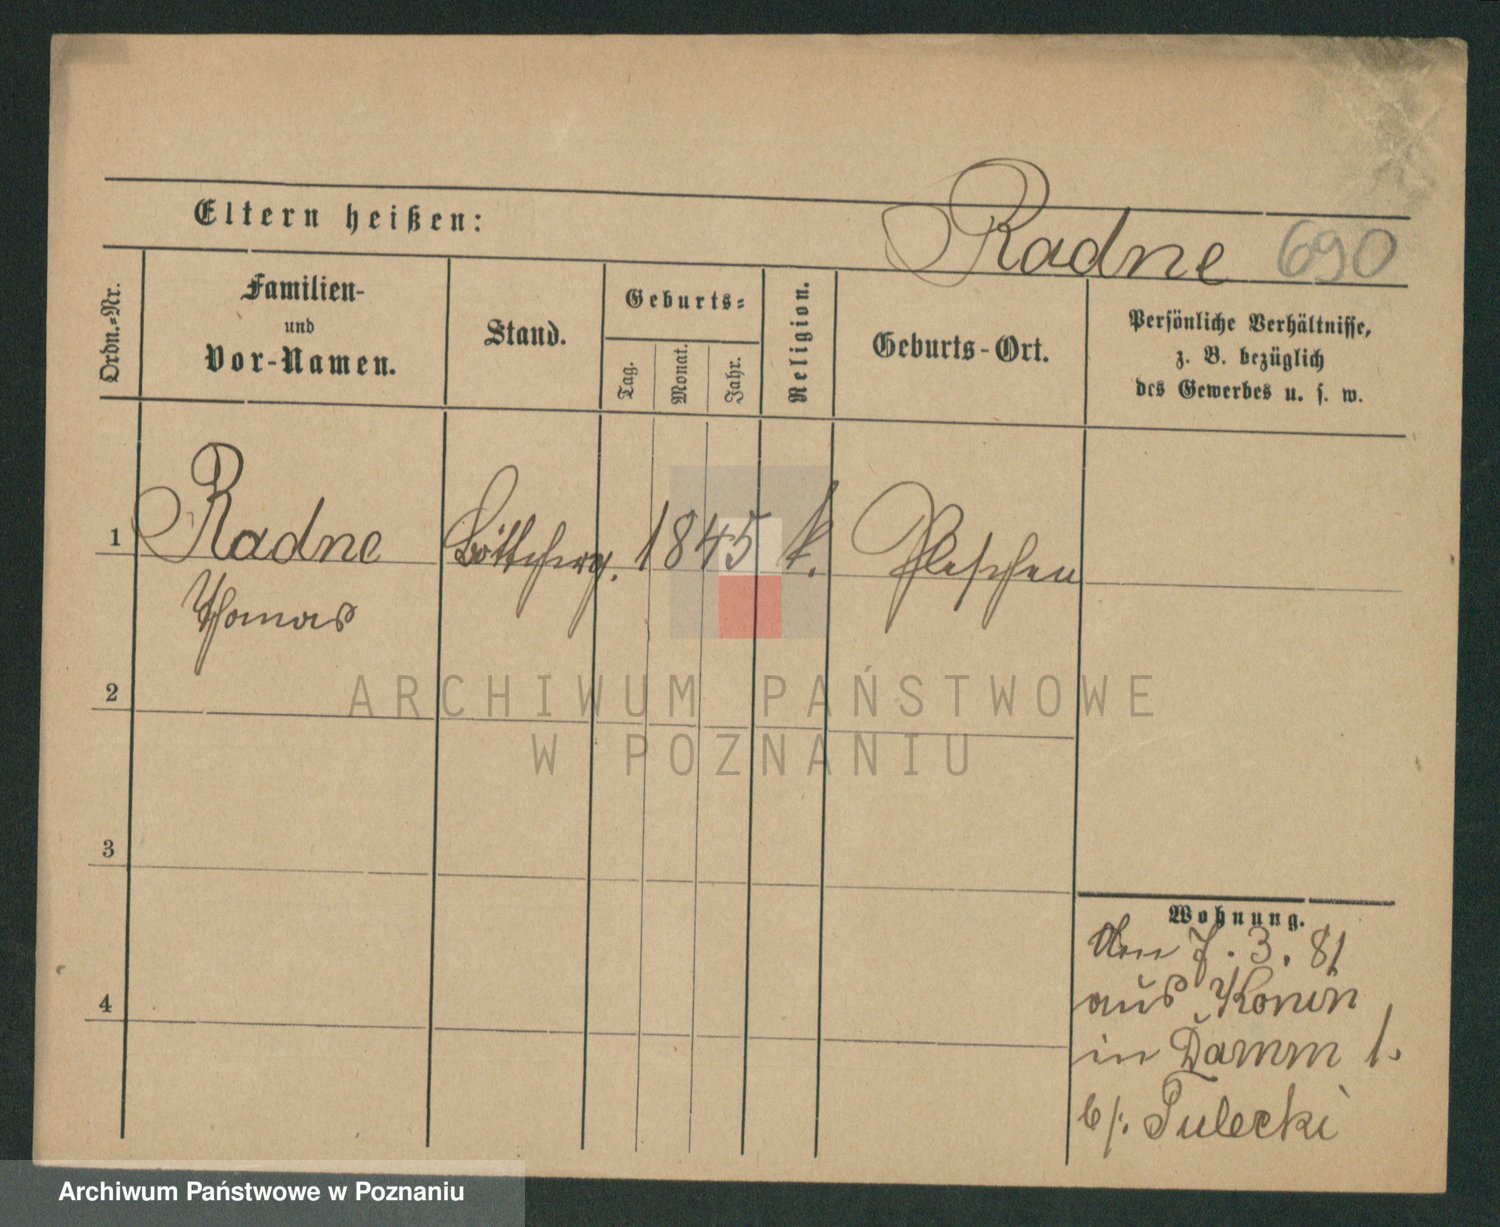 Eltern heißen:
Radne 690
Ordn.-Nr.
Familien-
und
Vor-Namen.
Stand.
Geburts-
Tag.
Monat.
Jahr.
Religion.
Geburts-Ort.
Persönliche Verhältnisse,
z. B. bezüglich
des Gewerbes u. s. w.
1 Radne Böttcherg. 1845 k. Pleschen
Thomas
2
3
4
Wohnung.
den 7. 3. 81
aus Konin
in Damm 1.
b/: Tulecki
ARCHIWUM PAŃSTWOWE
W POZNANIU
Archiwum Państwowe w Poznaniu